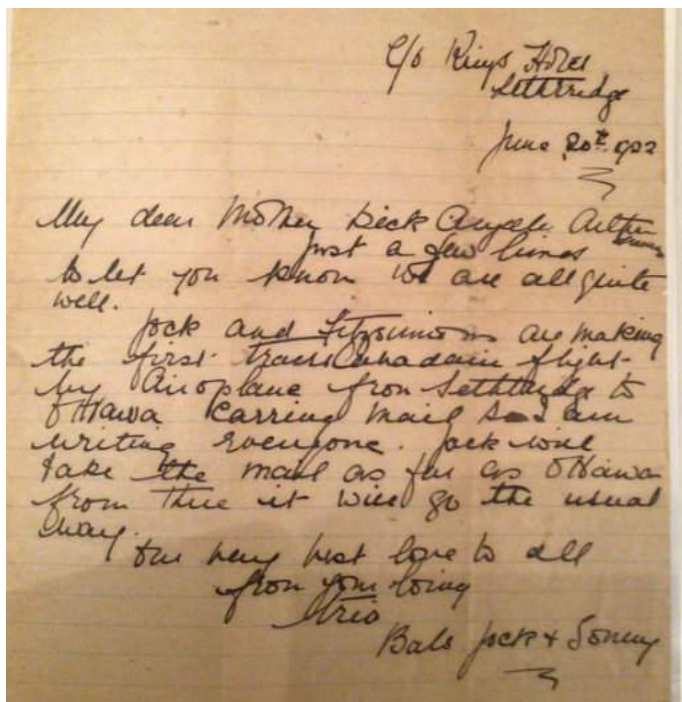 C/o Kings Hotel
Lethbridge
June 20th 1922
My dear Mother Dick Arthur
Just a few lines
to let you know we are all quite
well.
Jock and Fitzsimmons are making
the first trans Canadain flight
by airoplane from Lethbridge to
Ottawa carring mail so I am
writing everyone. Jock will
take the mail as far as Ottawa
from there it will go the usual
way.
Our very best love to all
from your loving
trio
Babs Jock & Sonny